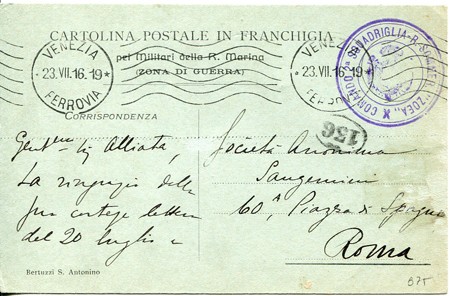 CARTOLINA POSTALE IN FRANCHIGIA
pei Militari della R. Marina
(ZONA DI GUERRA)
VENEZIA
23.VII.16.19*
FERROVIA
VENEZIA
23.VII.16.19*
COMANDO SQUADRIGLIA
CORRISPONDENZA
136
Gent.mo Sig Alliata,
La ringrazio della
sua cortese lettera
del 20 luglio e
Società Anonima
Sangemini
60A, Piazza di Spagna
Roma
Bertuzzi S. Antonino